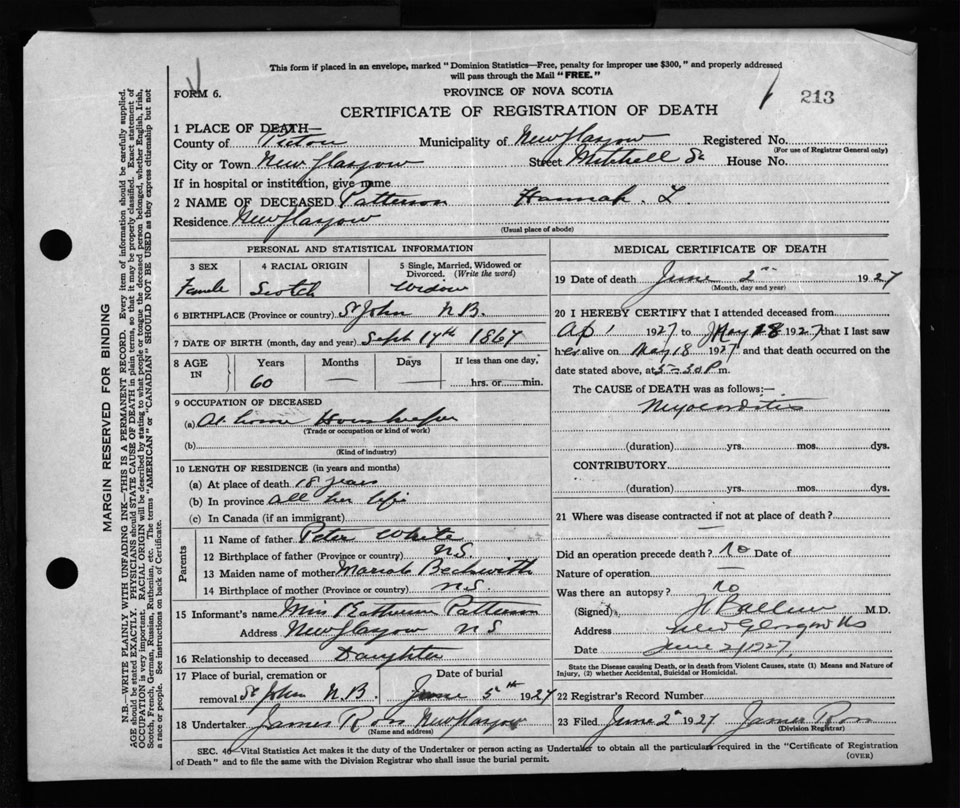 This form if placed in an envelope, marked "Dominion Statistics—Free, penalty for improper use $300," and properly addressed
will pass through the Mail "FREE."
FORM 6.
PROVINCE OF NOVA SCOTIA
213
CERTIFICATE OF REGISTRATION OF DEATH
1 PLACE OF DEATH—
County of Pictou Municipality of New Glasgow Registered No.
(For use of Registrar General only)
City or Town New Glasgow Street Mitchell St House No.
If in hospital or institution, give name
2 NAME OF DECEASED Patterson Hannah. L.
Residence New Glasgow
(Usual place of abode)
PERSONAL AND STATISTICAL INFORMATION
3 SEX 4 RACIAL ORIGIN 5 Single, Married, Widowed or
Divorced. (Write the word)
Female Scotch Widow
6 BIRTHPLACE (Province or country) St John N.B.
7 DATE OF BIRTH (month, day and year) Sept 17th 1867
8 AGE IN Years Months Days If less than one day,
60 — — hrs. or min.
9 OCCUPATION OF DECEASED
(a) At home Housekeeper
(Trade or occupation or kind of work)
(b)
(Kind of industry)
10 LENGTH OF RESIDENCE (in years and months)
(a) At place of death 18 years
(b) In province All her life
(c) In Canada (if an immigrant)
Parents
11 Name of father Peter White
12 Birthplace of father (Province or country) N.S.
13 Maiden name of mother Mariah Beckwith
14 Birthplace of mother (Province or country) N.S.
15 Informant's name Miss Katherine Patterson
Address New Glasgow N S
16 Relationship to deceased Daughter
17 Place of burial, cremation or Date of burial
removal St John N.B. June 5th 1927
18 Undertaker James Ross New Glasgow
(Name and address)
MEDICAL CERTIFICATE OF DEATH
19 Date of death June 2nd 1927
(Month, day and year)
20 I HEREBY CERTIFY that I attended deceased from
Ap 1 1927 to May 18 1927 that I last saw
her alive on May 18 1927 and that death occurred on the
date stated above, at 5-30 P m.
The CAUSE of DEATH was as follows:—
Myocarditis
(duration) yrs. mos. dys.
CONTRIBUTORY
(duration) yrs. mos. dys.
21 Where was disease contracted if not at place of death?
—
Did an operation precede death? No Date of
Nature of operation —
Was there an autopsy? no
(Signed) M.D.
Address New Glasgow NS
Date June 2/1927
State the Disease causing Death, or in death from Violent Causes, state (1) Means and Nature of
Injury, (2) whether Accidental, Suicidal or Homicidal.
22 Registrar's Record Number
23 Filed June 2nd 1927 James Ross
(Division Registrar)
SEC. 4—Vital Statistics Act makes it the duty of the Undertaker or person acting as Undertaker to obtain all the particulars required in the "Certificate of Registration
of Death" and to file the same with the Division Registrar who shall issue the burial permit.
(OVER)
MARGIN RESERVED FOR BINDING
N.B.—WRITE PLAINLY WITH UNFADING INK—THIS IS A PERMANENT RECORD. Every item of information should be carefully supplied.
AGE should be stated EXACTLY. PHYSICIANS should STATE CAUSE OF DEATH in plain terms, so that it may be properly classified. Exact statement of
OCCUPATION is very important. RACIAL ORIGIN will be described by stating to what people or tongue the deceased person belonged, whether English, Irish,
Scotch, French, German, Russian, Ruthenian, etc. The terms "AMERICAN" or "CANADIAN" SHOULD NOT BE USED as they express citizenship but not
a race or people. See instructions on back of Certificate.